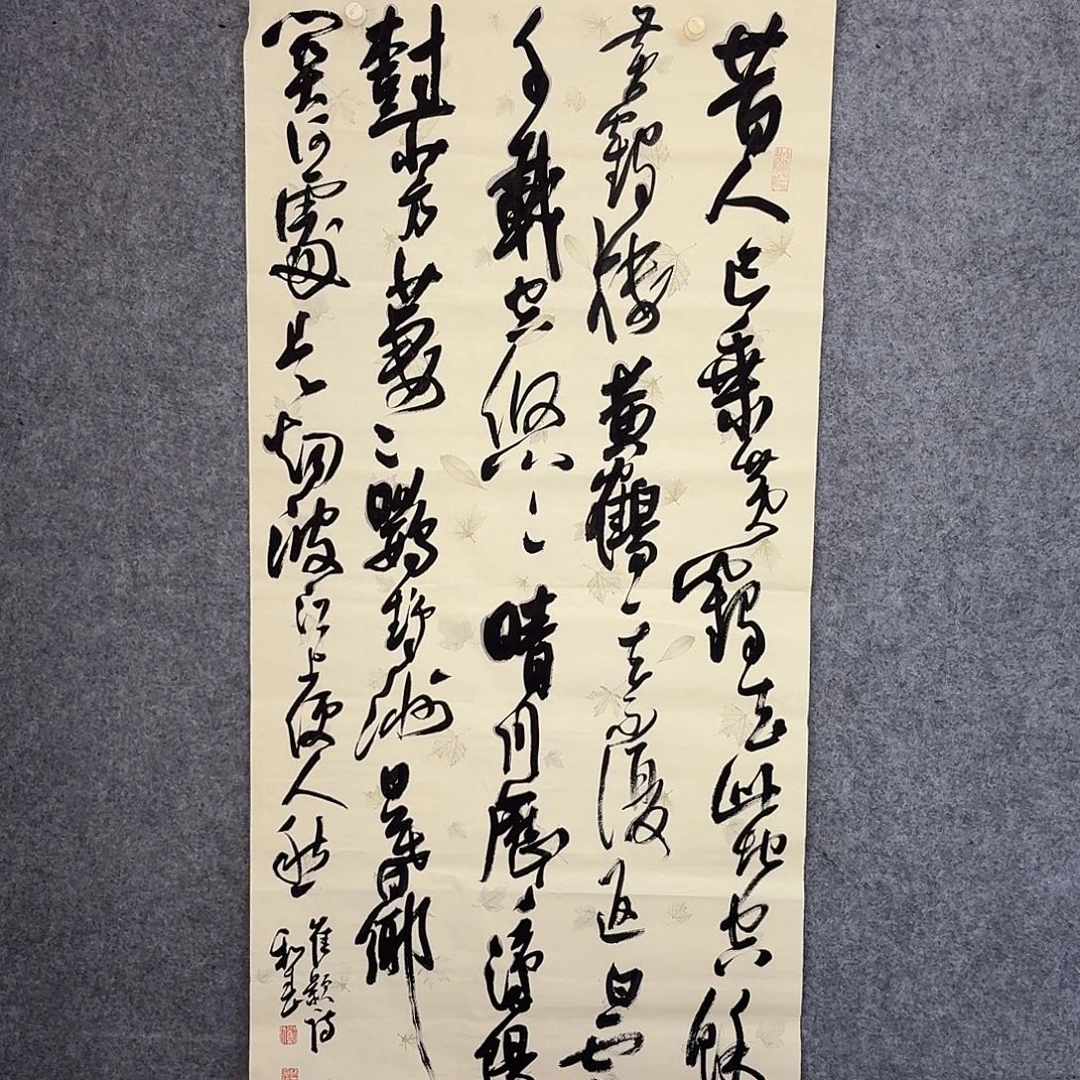 昔人已乘黃鶴去此地空餘
黃鶴樓黃鶴一去不復返白雲
千載空悠〻晴川歷〻漢陽
樹芳草萋〻鸚鵡洲日暮鄉
關何處是烟波江上使人愁
崔顥詩